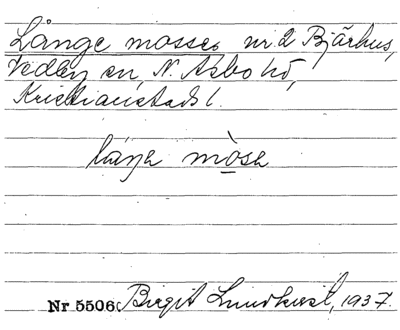 Långe mosse, nr 2 Bjärhus,
Vedby sn, N. Åsbo hd,
Kristianstads l.
låŋa mòsa
Nr 5506 Birgit Lundkvist, 1937.